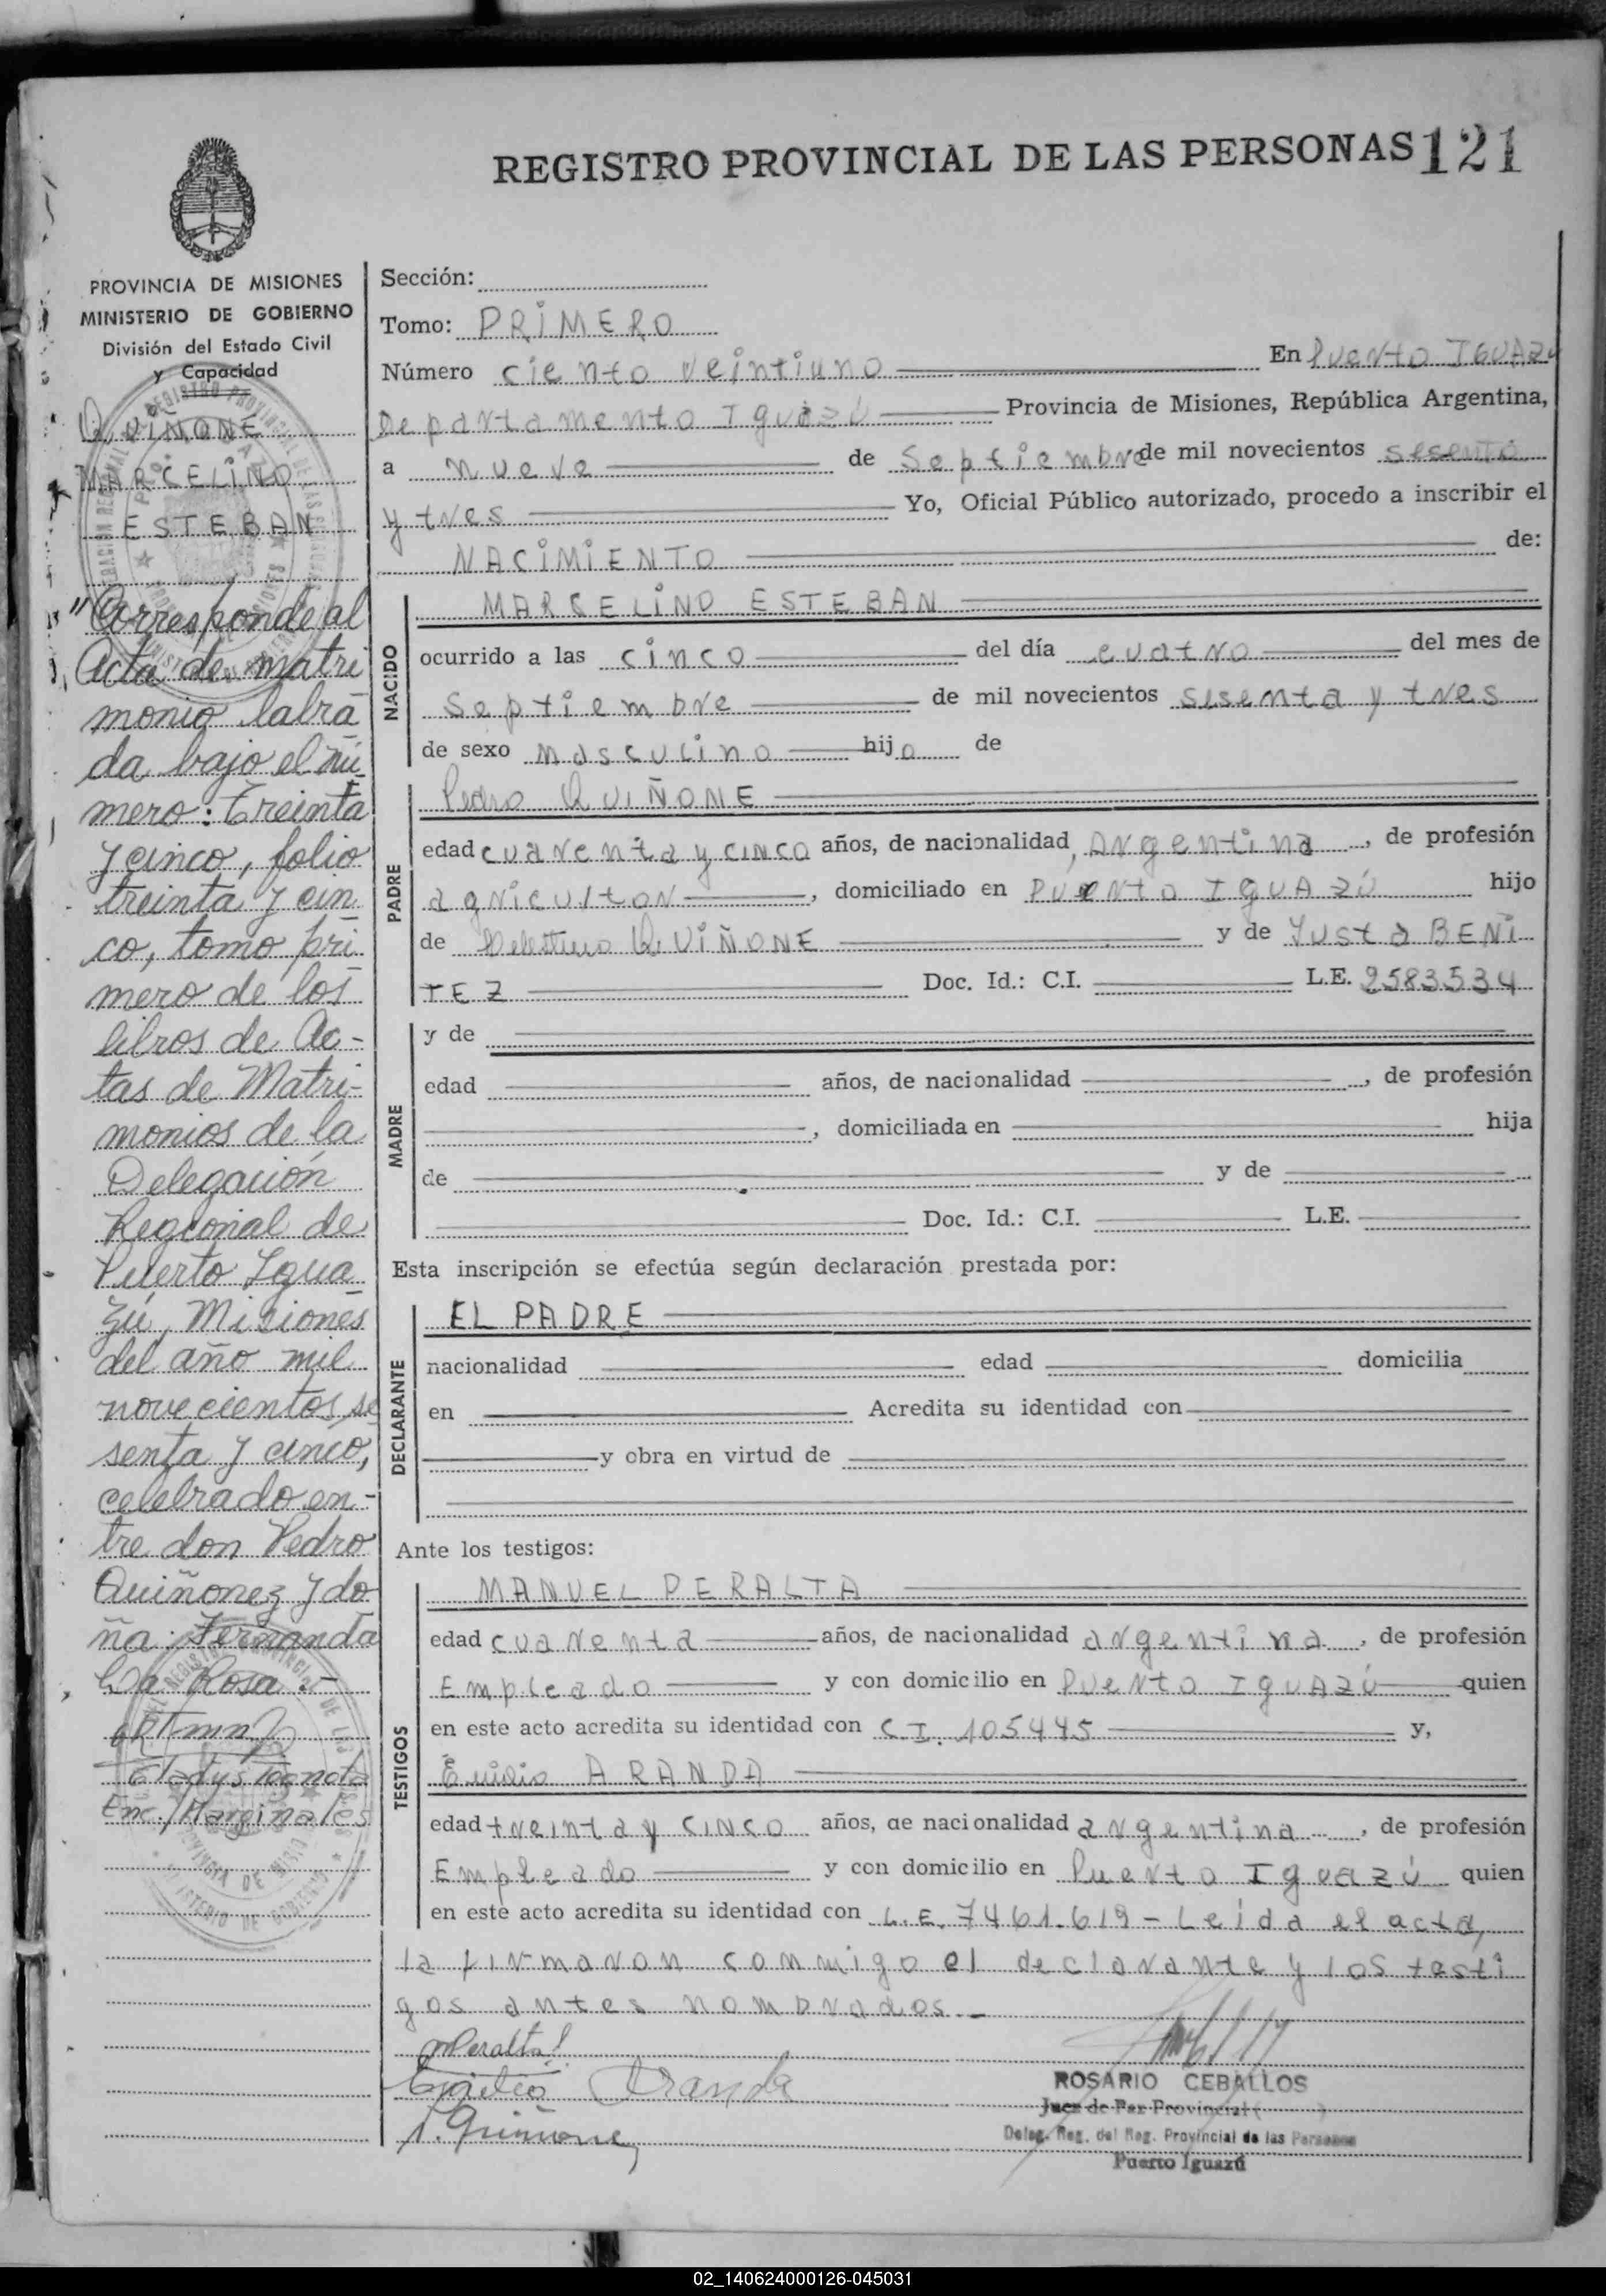 REGISTRO PROVINCIAL DE LAS PERSONAS 121
PROVINCIA DE MISIONES
MINISTERIO DE GOBIERNO
División del Estado Civil
y Capacidad
QUIÑONE
MARCELINO
ESTEBAN
"Corresponde al
Acta de matri
monio labra
da bajo el nú
mero: Treinta
y cinco, folio
treinta y cin
co, tomo pri
mero de los
libros de Ac-
tas de Matri-
monios de la
Delegación
Regional de
Puerto Igua
zú, Misiones
del año mil
novecientos se
senta y cinco,
celebrado en-
tre don Pedro
Quiñonez y do
ña Fernanda
Da Rosa.-
Gladys
Enc./Marginales
Sección:
Tomo: PRIMERO
Número ciento veintiuno En Puerto IGUAZU
Departamento Iguazú Provincia de Misiones, República Argentina,
a nueve de Septiembre de mil novecientos sesenta
y tres Yo, Oficial Público autorizado, procedo a inscribir el
NACIMIENTO de:
NACIDO
MARCELINO ESTEBAN
ocurrido a las cinco del día cuatro del mes de
Septiembre de mil novecientos sesenta y tres
de sexo masculino hijo de
PADRE
Pedro QUIÑONE
edad cuarenta y cinco años, de nacionalidad Argentina, de profesión
agricultor, domiciliado en Puerto IGUAZÚ hijo
de QUIÑONE y de Justa BENI
TEZ Doc. Id.: C.I. L.E. 2583534
MADRE
y de
edad años, de nacionalidad , de profesión
, domiciliada en hija
de y de
Doc. Id.: C.I. L.E.
Esta inscripción se efectúa según declaración prestada por:
DECLARANTE
EL PADRE
nacionalidad edad domicilia
en Acredita su identidad con
y obra en virtud de
Ante los testigos:
TESTIGOS
MANUEL PERALTA
edad cuarenta años, de nacionalidad argentina, de profesión
Empleado y con domicilio en Puerto IGUAZÚ quien
en este acto acredita su identidad con C.I. 105445 y,
ARANDA
edad treinta y cinco años, de nacionalidad argentina, de profesión
Empleado y con domicilio en Puerto Iguazú quien
en este acto acredita su identidad con L.E. 7461.619 - Leída el acta,
la firmaron conmigo el declarante y los testi
gos antes nombrados.-
mPeralta
Aranda
ROSARIO CEBALLOS
Juez de Paz Provincial
Deleg. Reg. del Reg. Provincial de las Personas
Puerto Iguazú
02_140624000126-045031